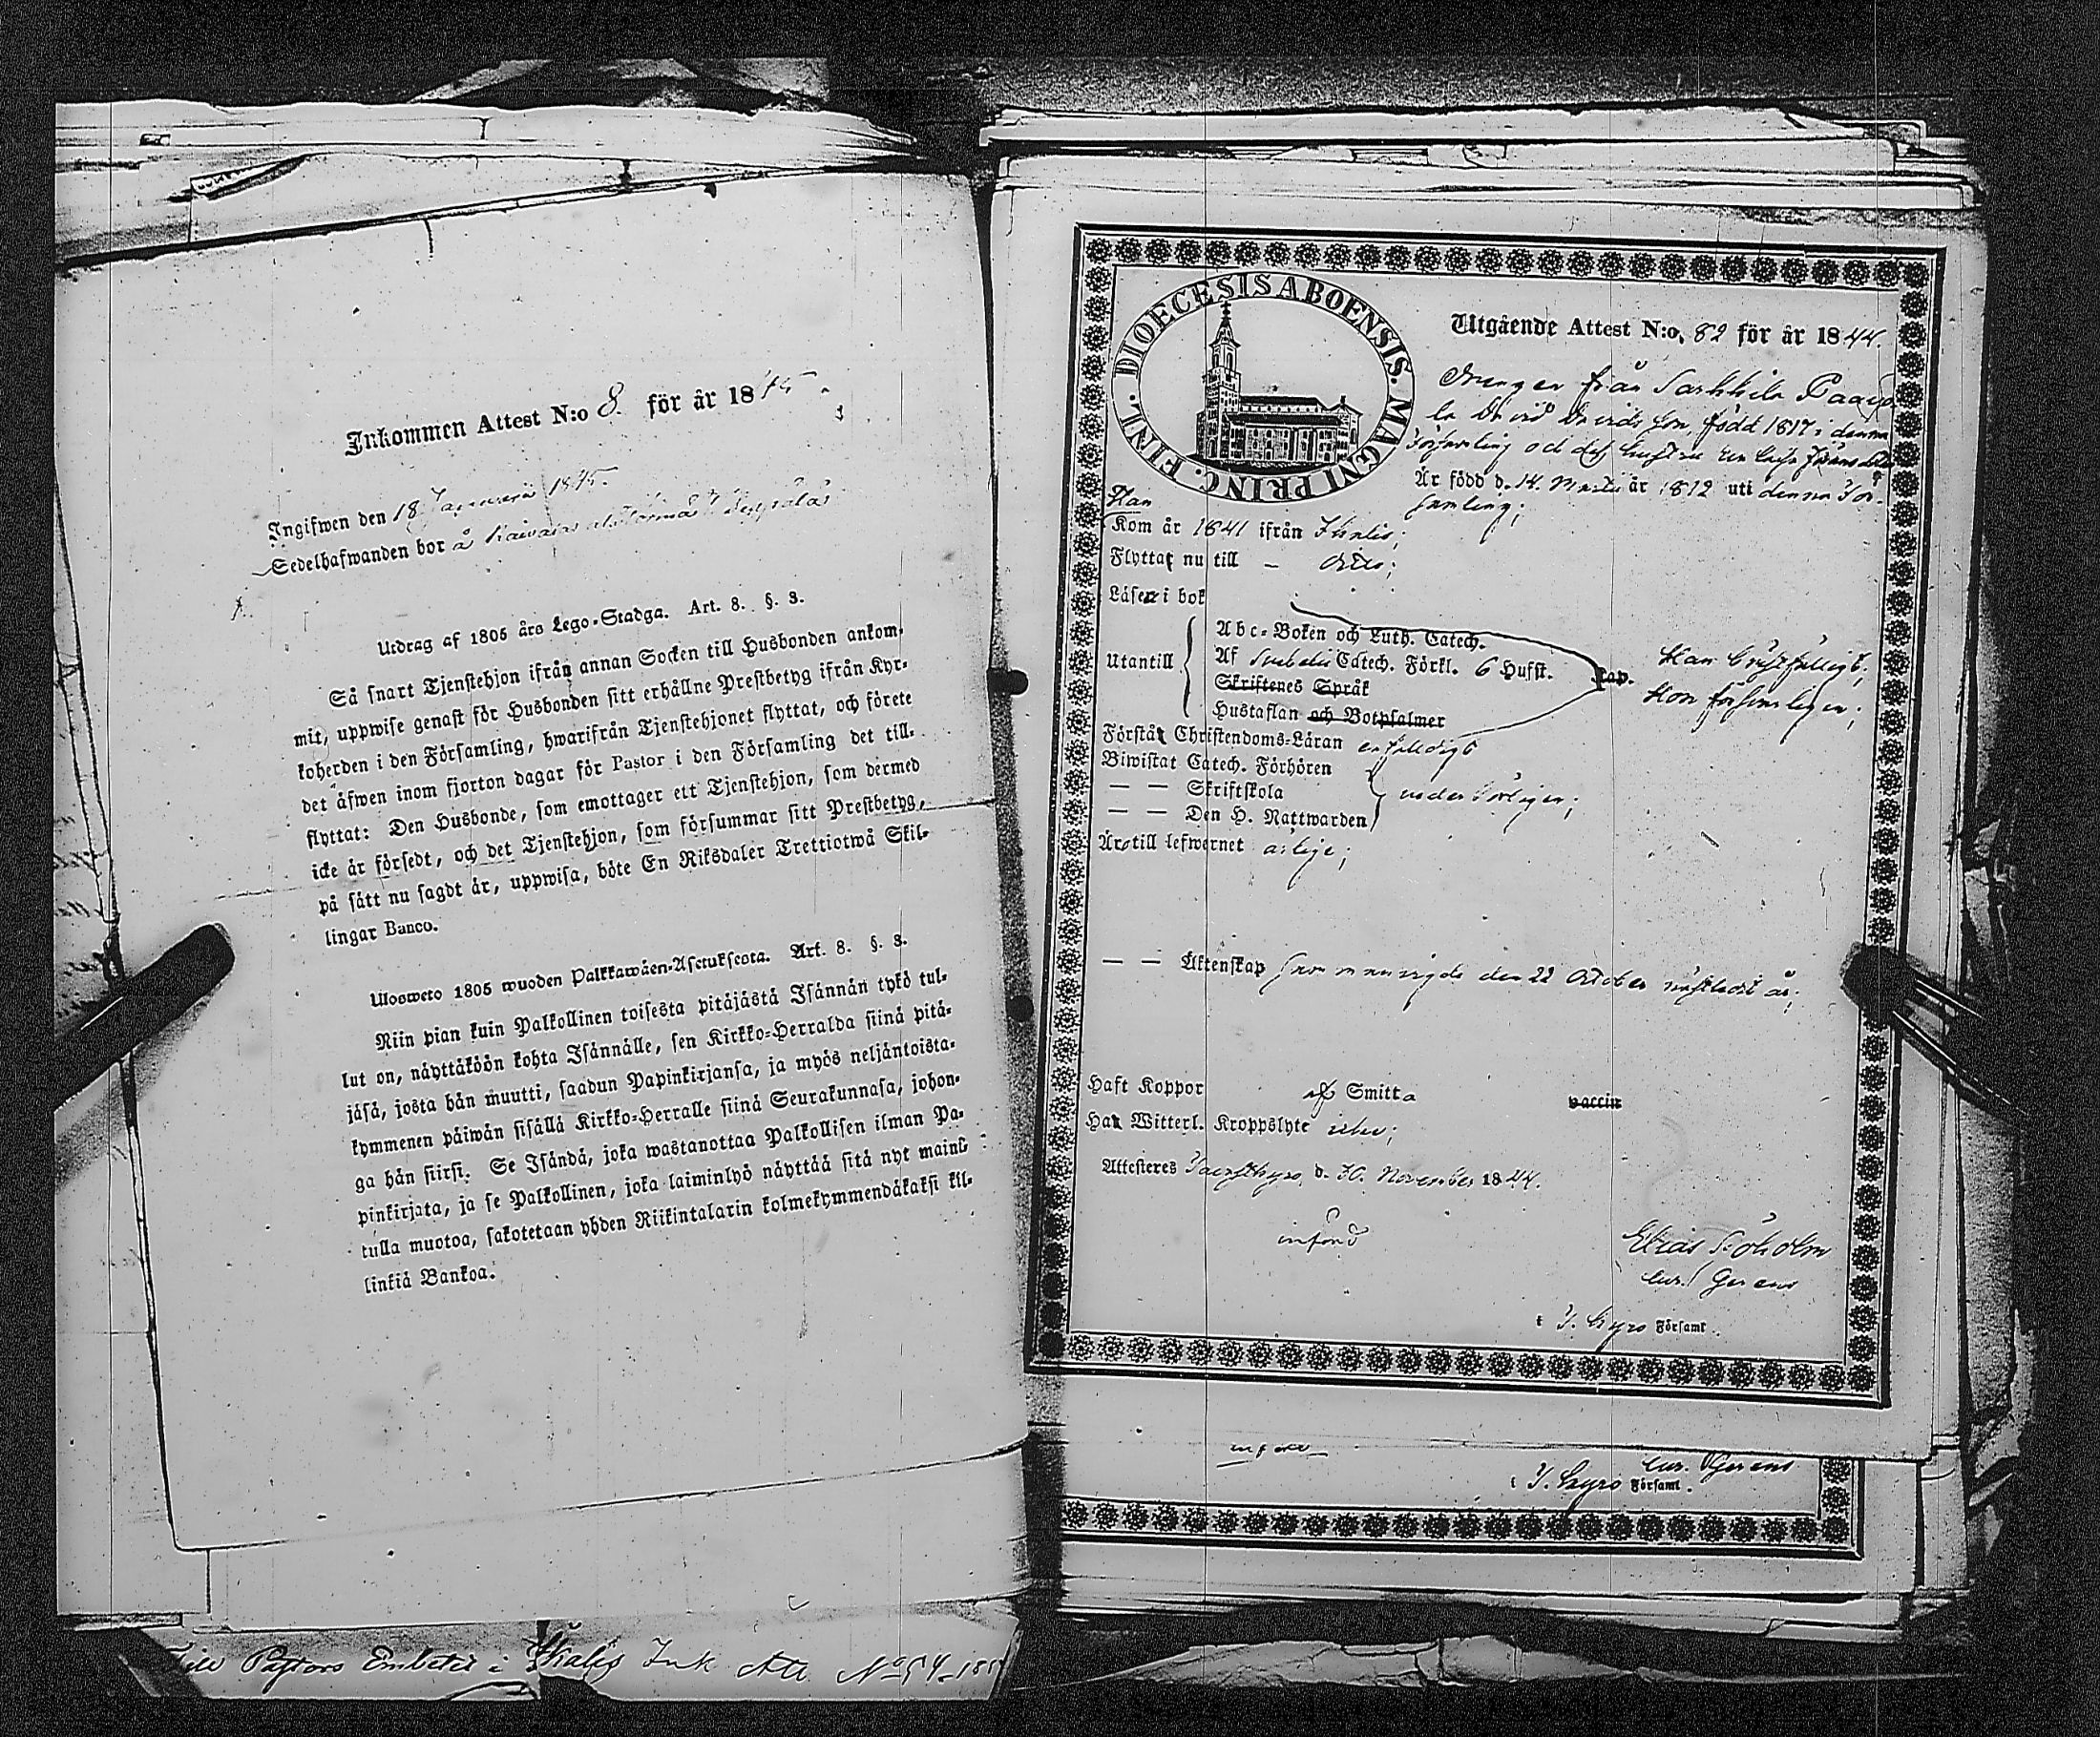 Inkommen Attest N:o 8. för år 1845
Ingifwen den 18 Januarii 1845.
Sedelhafwanden bor å
Utdrag af 1805 års Lego-Stadga. Art. 8. §. 3.
Så snart Tjenstehjon ifrån annan Socken till Husbonden ankom-
mit, uppwise genast för Husbonden sitt erhållne Prestbetyg ifrån Kyr-
koherden i den Församling, hwarifrån Tjenstehjonet flyttat, och förete
det äfwen inom fjorton dagar för Pastor i den Församling det till-
flyttat: Den Husbonde, som emottager ett Tjenstehjon, som dermed
icke är försedt, och det Tjenstehjon, som försummar sitt Prestbetyg,
på sätt nu sagdt är, uppwisa, böte En Riksdaler Trettiotwå Skil-
lingar Banco.
Ulosweto 1805 wuoden Palkkawäen-Asetuksesta. Art. 8. §. 3.
Niin pian kuin Palkollinen toisesta pitäjästä Isännän tykö tul-
lut on, näyttäköön kohta Isännälle, sen Kirkko-Herralda siinä pitä-
jäsä, josta hän muutti, saadun Papinkirjansa, ja myös neljäntoista-
kymmenen päiwän sisällä Kirkko-Herralle siinä Seurakunnasa, johon-
ga hän siirsi. Se Isändä, joka wastanottaa Palkollisen ilman Pa-
pinkirjata, ja se Palkollinen, joka laiminlyö näyttää sitä nyt mainit-
tulla muotoa, sakotetaan yhden Riikintalarin kolmekymmendäkaksi kil-
linkiä Bankoa.
Till Pastors Embetet i Ikalis Ink Att. No 54
DIOECESIS ABOENSIS. MAGNI PRINC. FINL.
Utgående Attest N:o, 82 för år 1844.
Drengen från Sarkkila
David Davids Son, född 1817 i denna
Församling och dess hustru
Är född d. 14. Martii år 1812 uti denna För-
samling;
Han
Kom år 1841 ifrån Ikalis;
Flyttat nu till – dito;
Läser i bok
Utantill
Abc-Boken och Luth. Catech.
Af Svebelii Catech. Förkl. 6 Hufst. kap.
Skriftenes Språk
Hustaflan och Botpsalmer
Han bristfälligt;
Hon försvarligen;
Förstår Christendoms-Läran enfaldigt
Biwistat Catech. Förhören
— — Skriftskola
— — Den H. Nattwarden
vederbörligen;
Äro till lefwernet ärlige;
— — Äktenskap sammanvigde den 22 October sistledit år;
Haft Koppor af Smitta vaccin
Har Witterl. Kroppslyte icke;
Attesteres Tavastkyro, d. 30. November 1844.
införd
Elias Sjöholm
Cur. Gerens
i T. Kyro Församl.
införd
Cur. Gerens
i T. Kyro Församl.